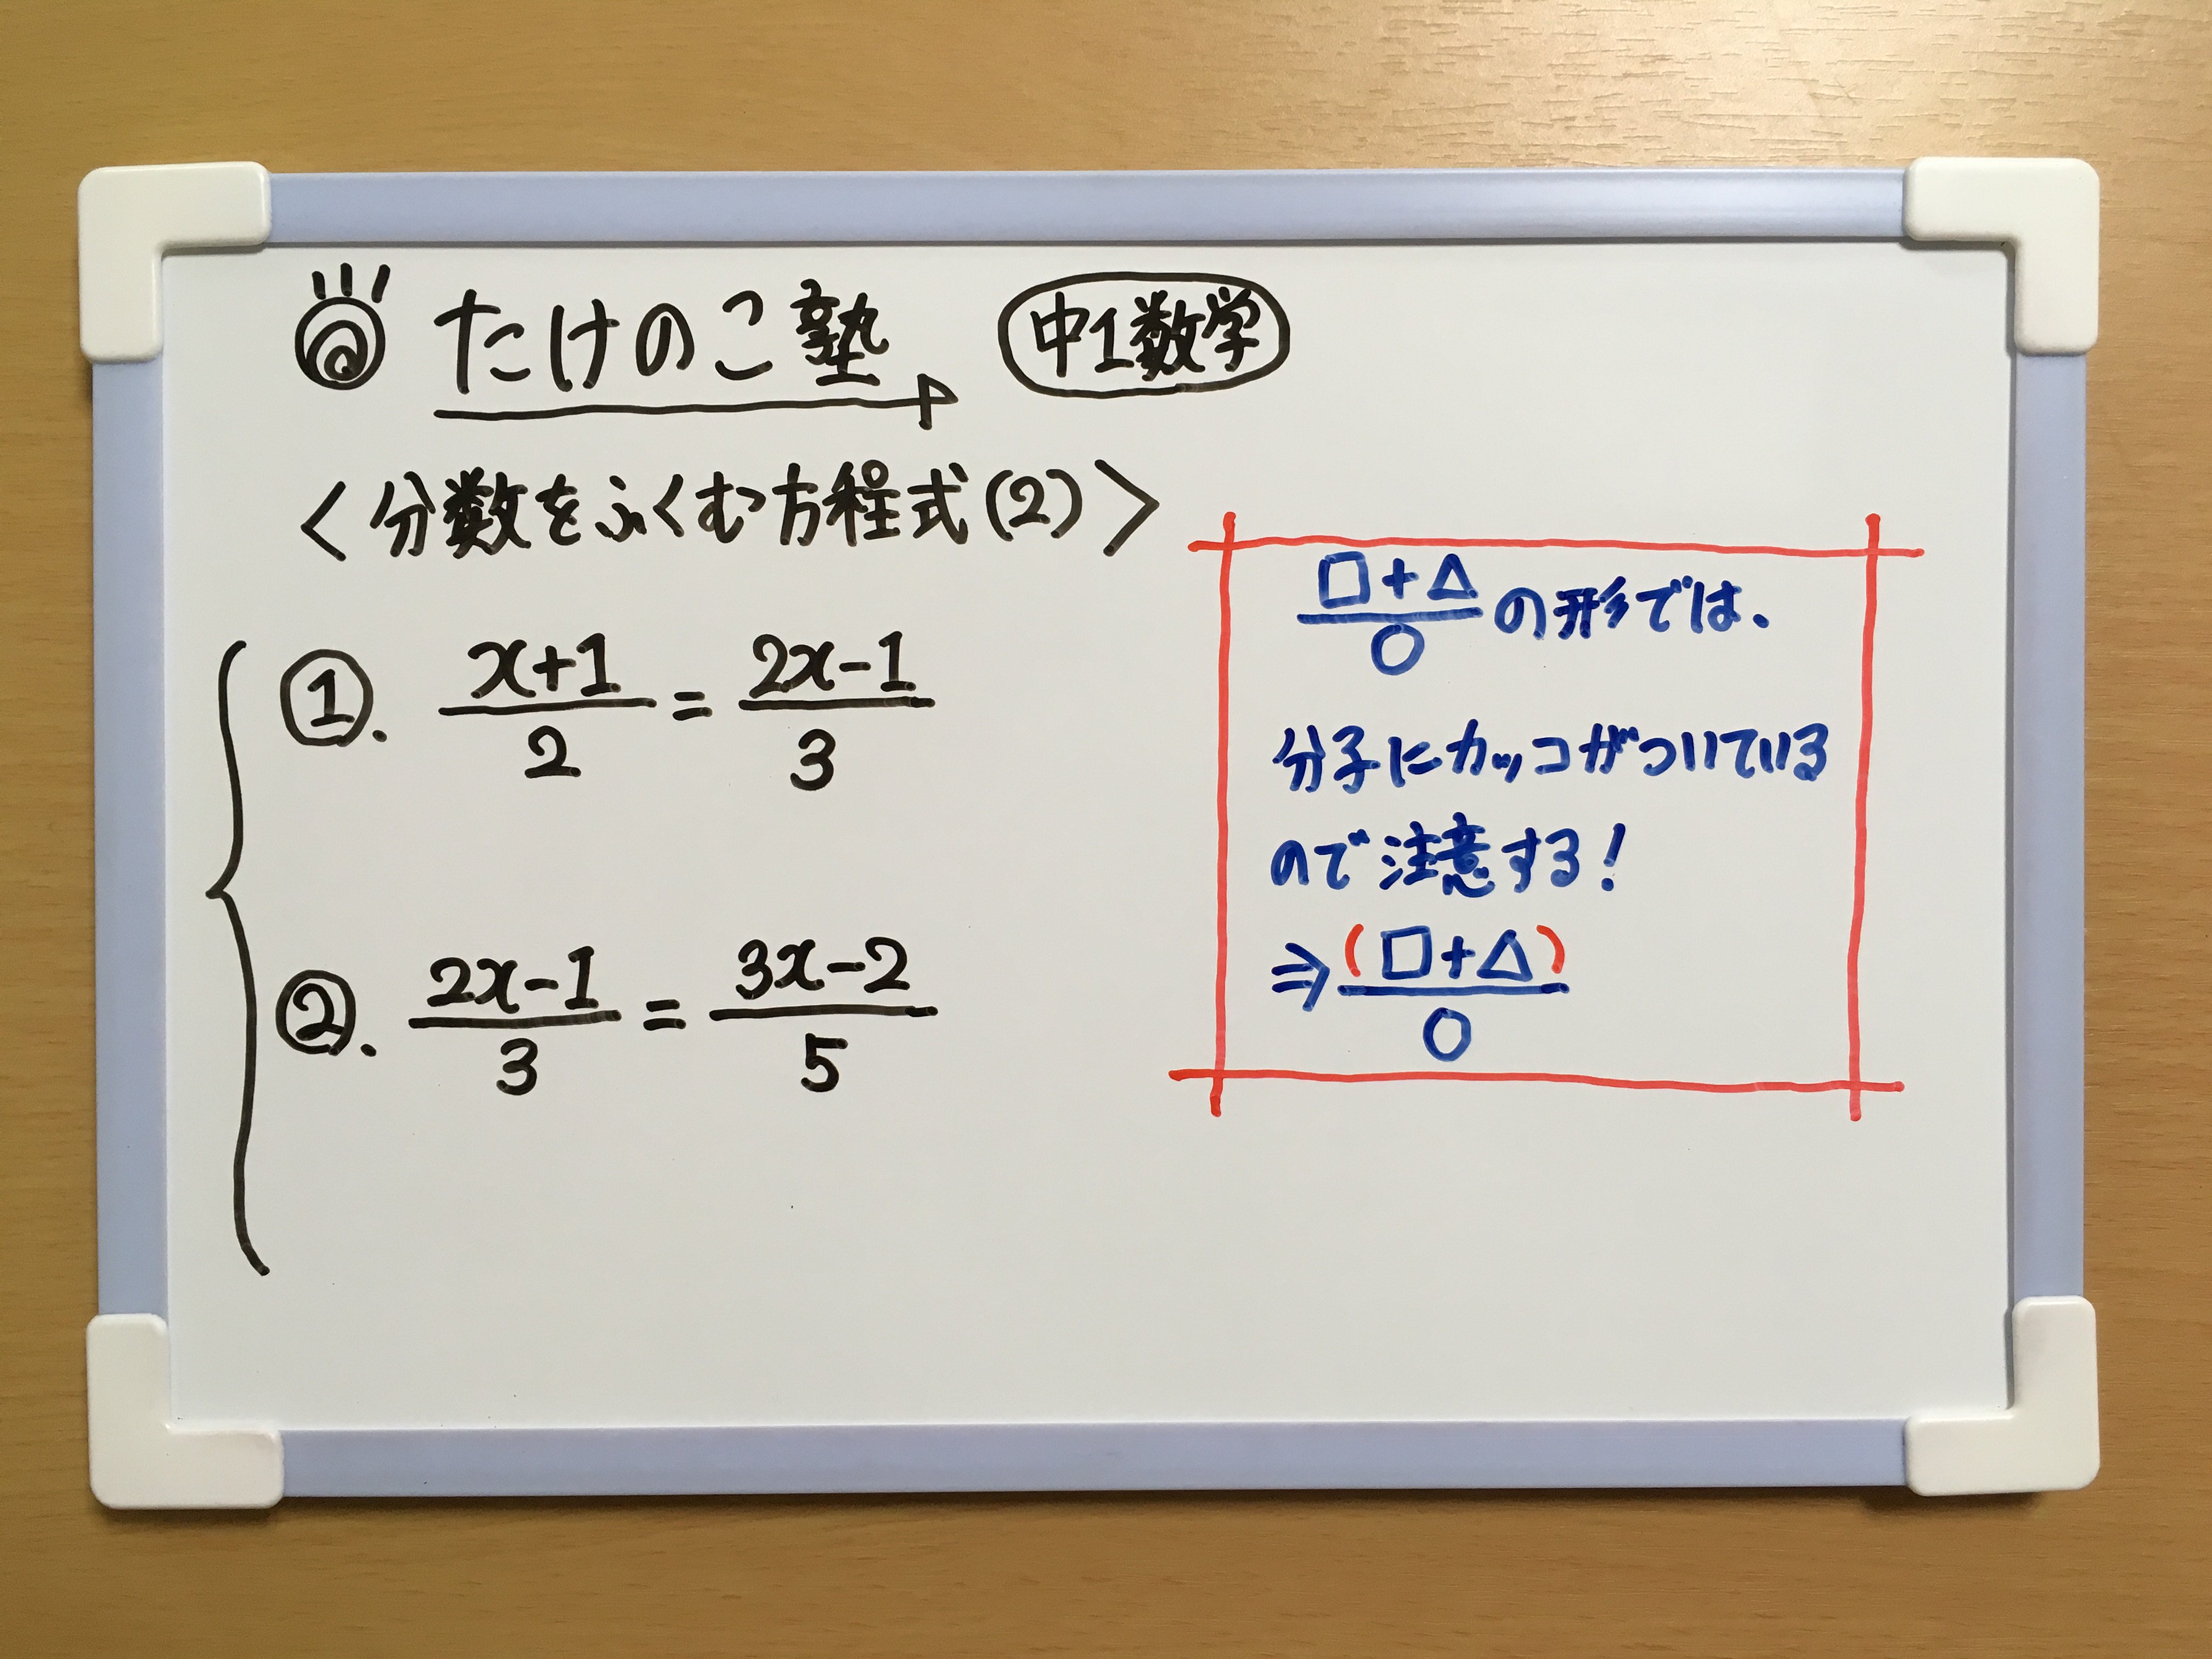 たけのこ塾 中1数学
<分数をふくむ方程式(2)>
①. x+1/2 = 2x-1/3
②. 2x-1/3 = 3x-2/5
□+△/○の形では、
分子にカッコがついている
ので注意する!
⇒(□+△)/○